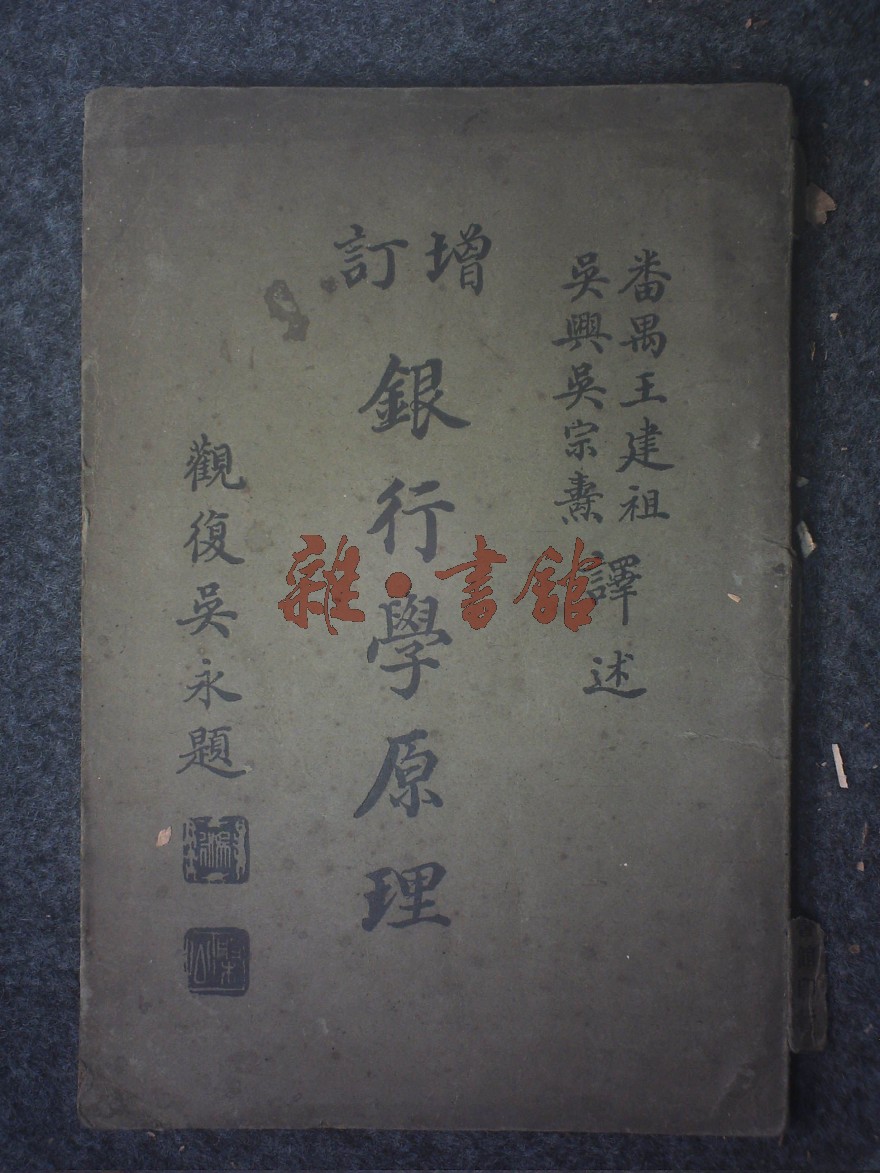 番禺王建祖
吳興吳宗燾
譯述
增訂
銀行學原理
觀復吳永題
雜·書館